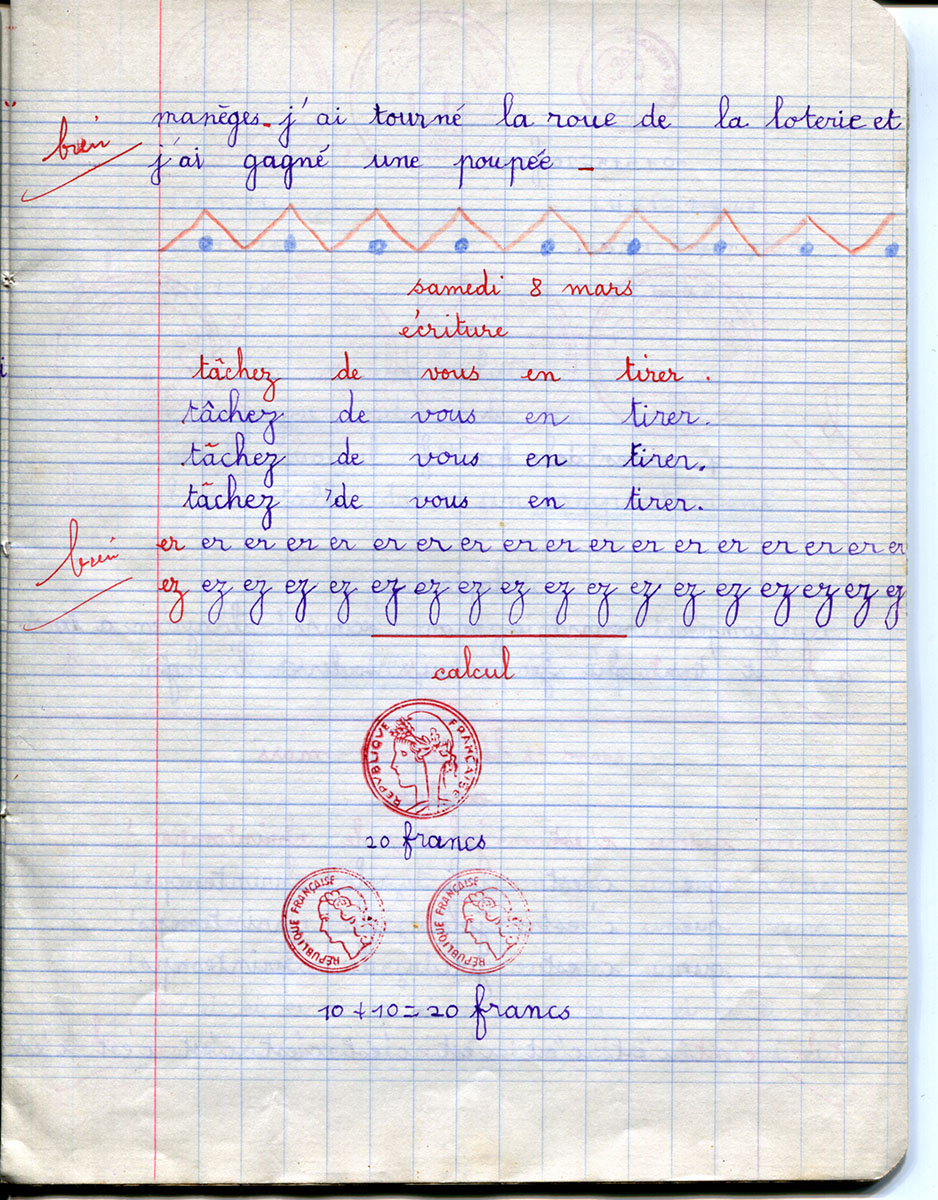 bien
manèges_ j'ai tourné la roue de la loterie et
j'ai gagné une poupée _
samedi 8 mars
écriture
tâchez de vous en tirer.
tâchez de vous en tirer.
tâchez de vous en tirer.
tâchez de vous en tirer.
bien
er er er er er er er er er er er er er er er er er er
ez ez ez ez ez ez ez ez ez ez ez ez ez ez ez ez ez ez
calcul
REPVBLIQVE FRANÇAISE
20 francs
RÉPUBLIQUE FRANÇAISE RÉPUBLIQUE FRANÇAISE
10 + 10 = 20 francs